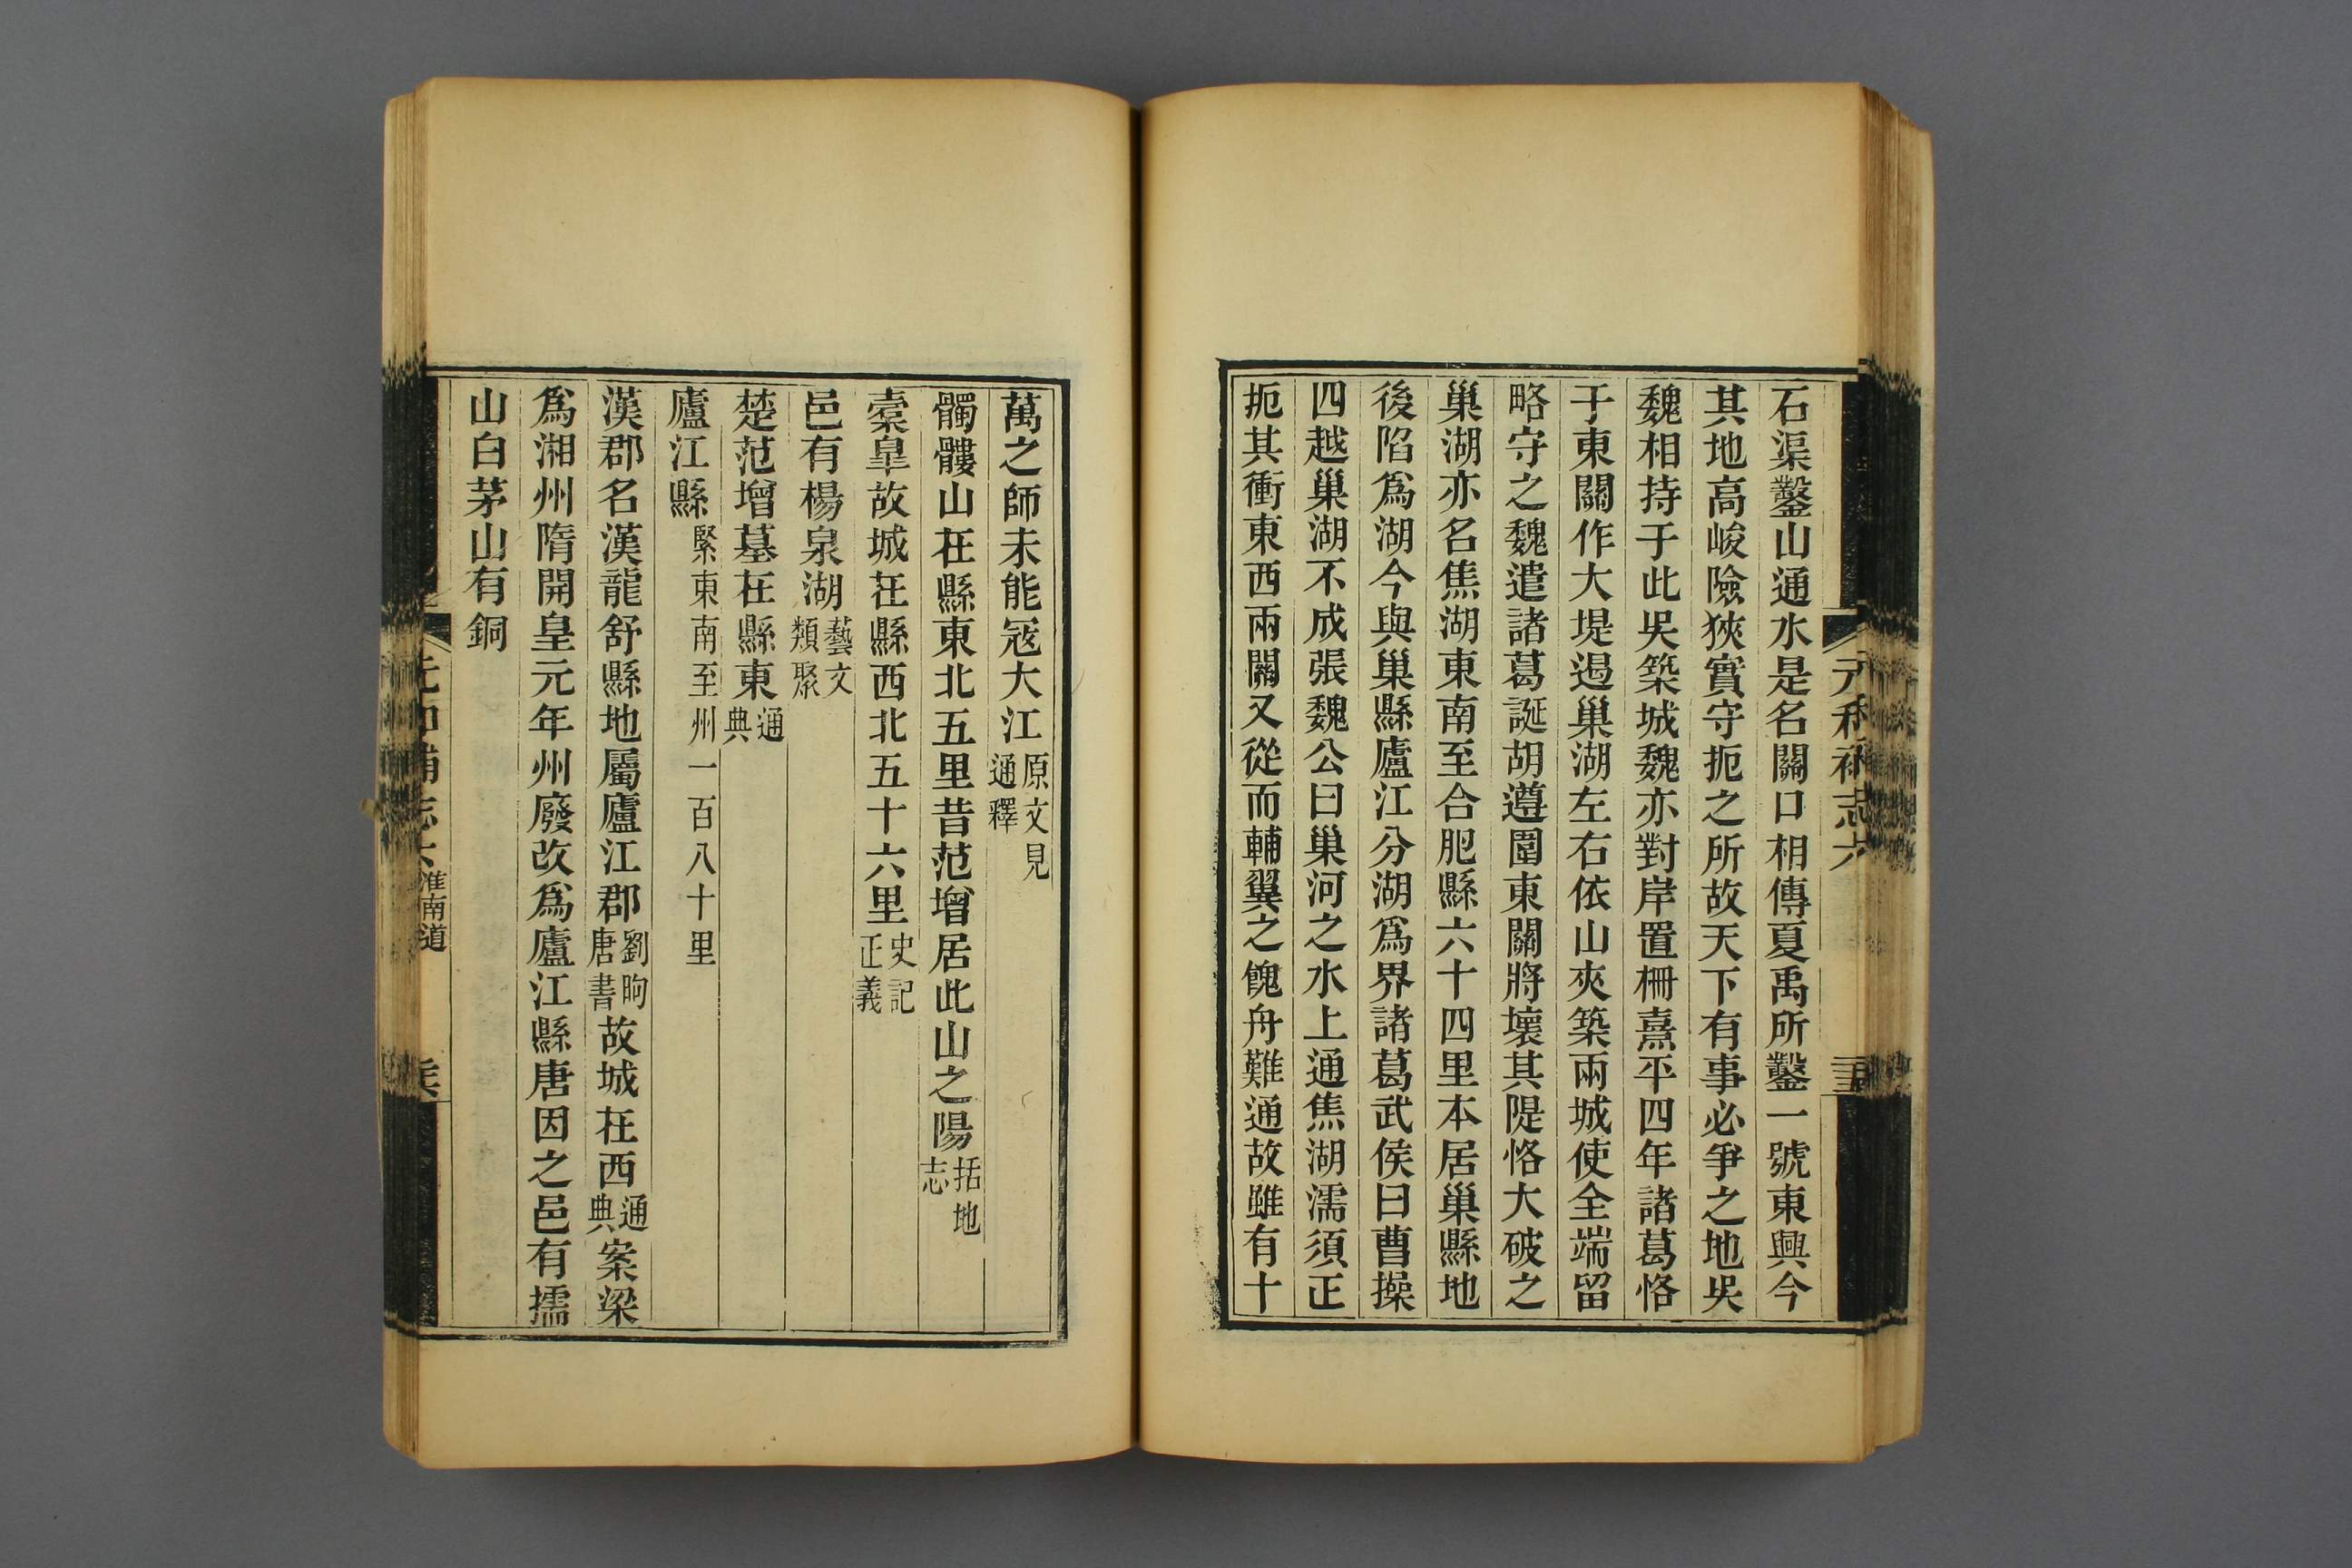 元和補志六
石渠鑿山通水是名關口相傳夏禹所鑿一號東興今
其地高峻險狹實守扼之所故天下有事必爭之地吳
魏相持于此吳築城魏亦對岸置柵熹平四年諸葛恪
于東關作大堤遏巢湖左右依山夾築兩城使全端留
略守之魏遣諸葛誕胡遵圍東關將壞其隄恪大破之
巢湖亦名焦湖東南至合肥縣六十四里本居巢縣地
後陷爲湖今與巢縣廬江分湖爲界諸葛武侯曰曹操
四越巢湖不成張魏公曰巢河之水上通焦湖濡須正
扼其衝東西兩關又從而輔翼之餽舟難通故雖有十
萬之師未能寇大江原文見通釋
髑髏山在縣東北五里昔范增居此山之陽括地志
橐皐故城在縣西北五十六里史記正義
邑有楊泉湖藝文類聚
楚范增墓在縣東通典
廬江縣緊東南至州一百八十里
漢郡名漢龍舒縣地屬廬江郡劉昫唐書故城在西通典案梁
爲湘州隋開皇元年州廢改爲廬江縣唐因之邑有擩
山白茅山有銅
元和補志六 淮南道